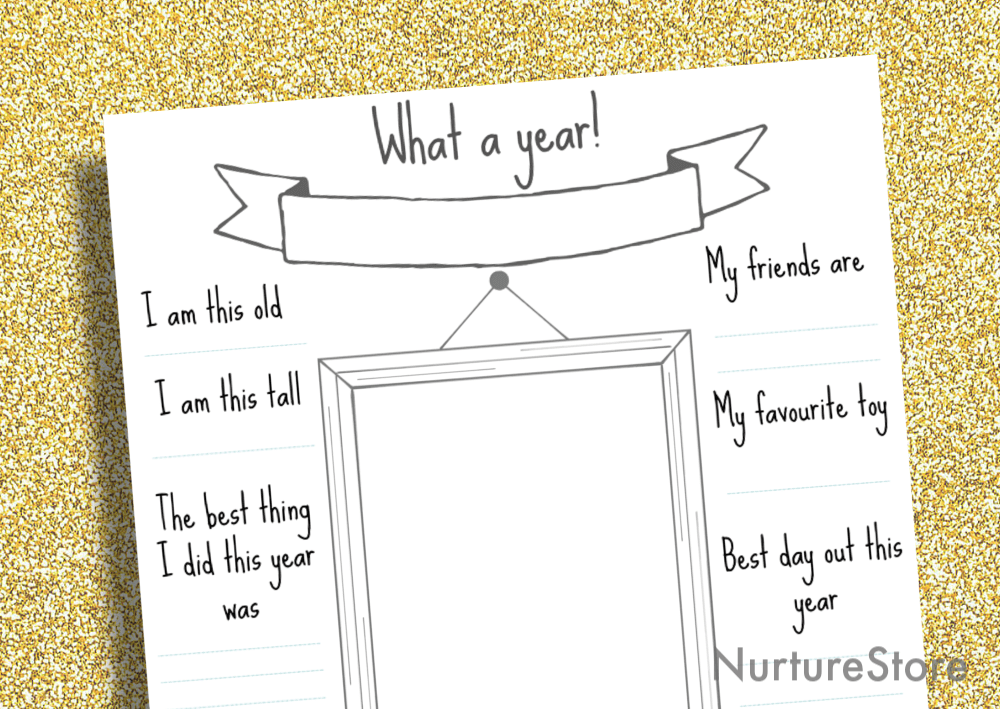 What a year!
I am this old
I am this tall
The best thing
I did this year
was
My friends are
My favourite toy
Best day out this
year
NurtureStore